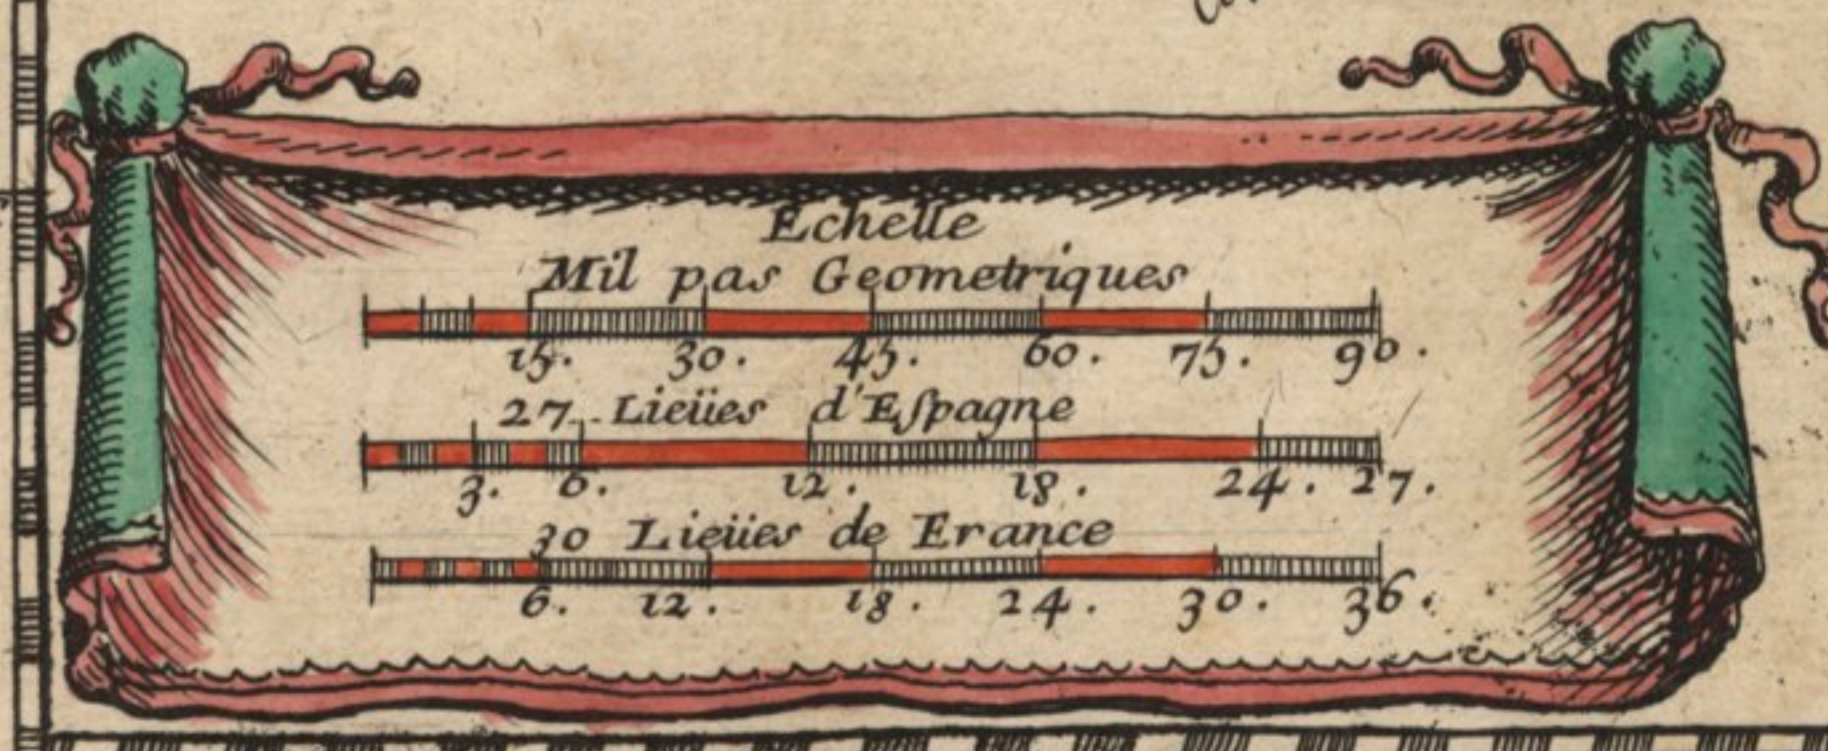 Echelle
Mil pas Geometriques
15. 30. 45. 60. 75. 90.
27 Lieües d'Eſpagne
3. 6. 12. 18. 24. 27.
30 Lieües de France
6. 12. 18. 24. 30. 36.